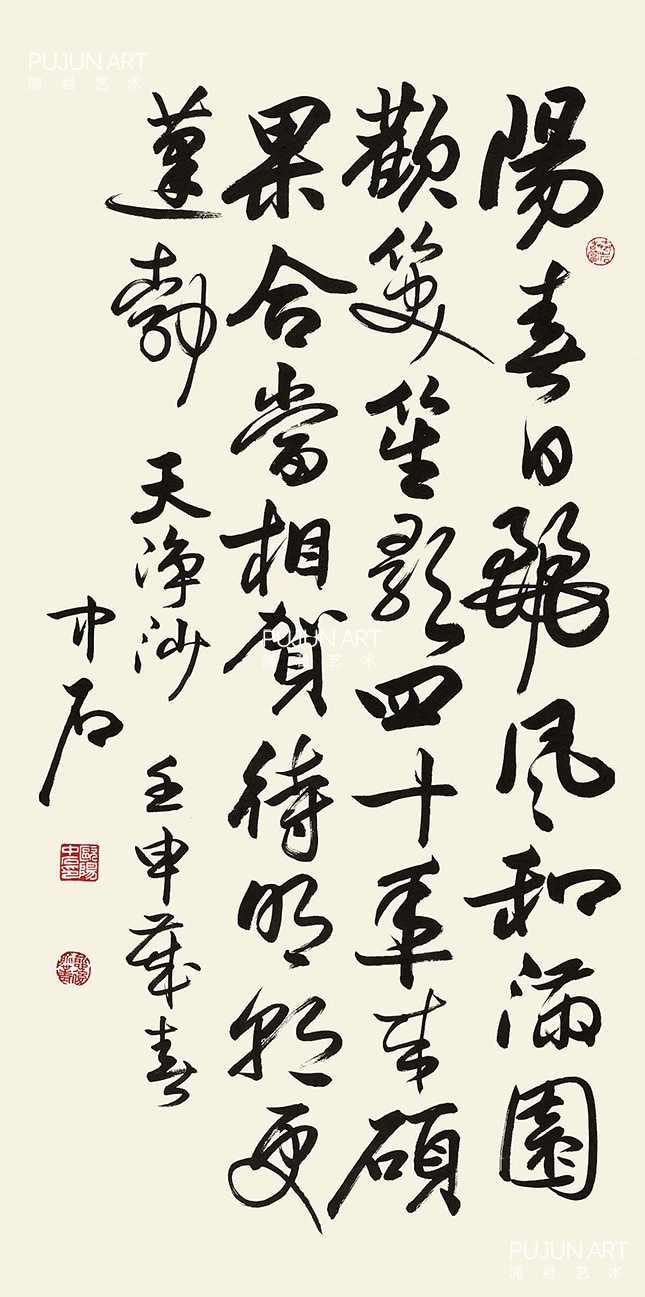 PUJUN ART
浦君艺术
陽春日麗風和滿園
歡笑笙歌四十年來碩
果合當相賀待明朝更
蓬勃 天淨沙 壬申歲春
中石
歐陽中石印
PUJUN ART
浦君艺术
PUJUN ART
浦君艺术